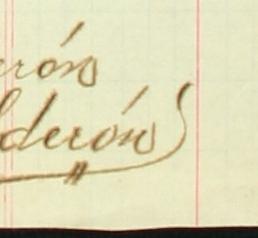 erón
lderón